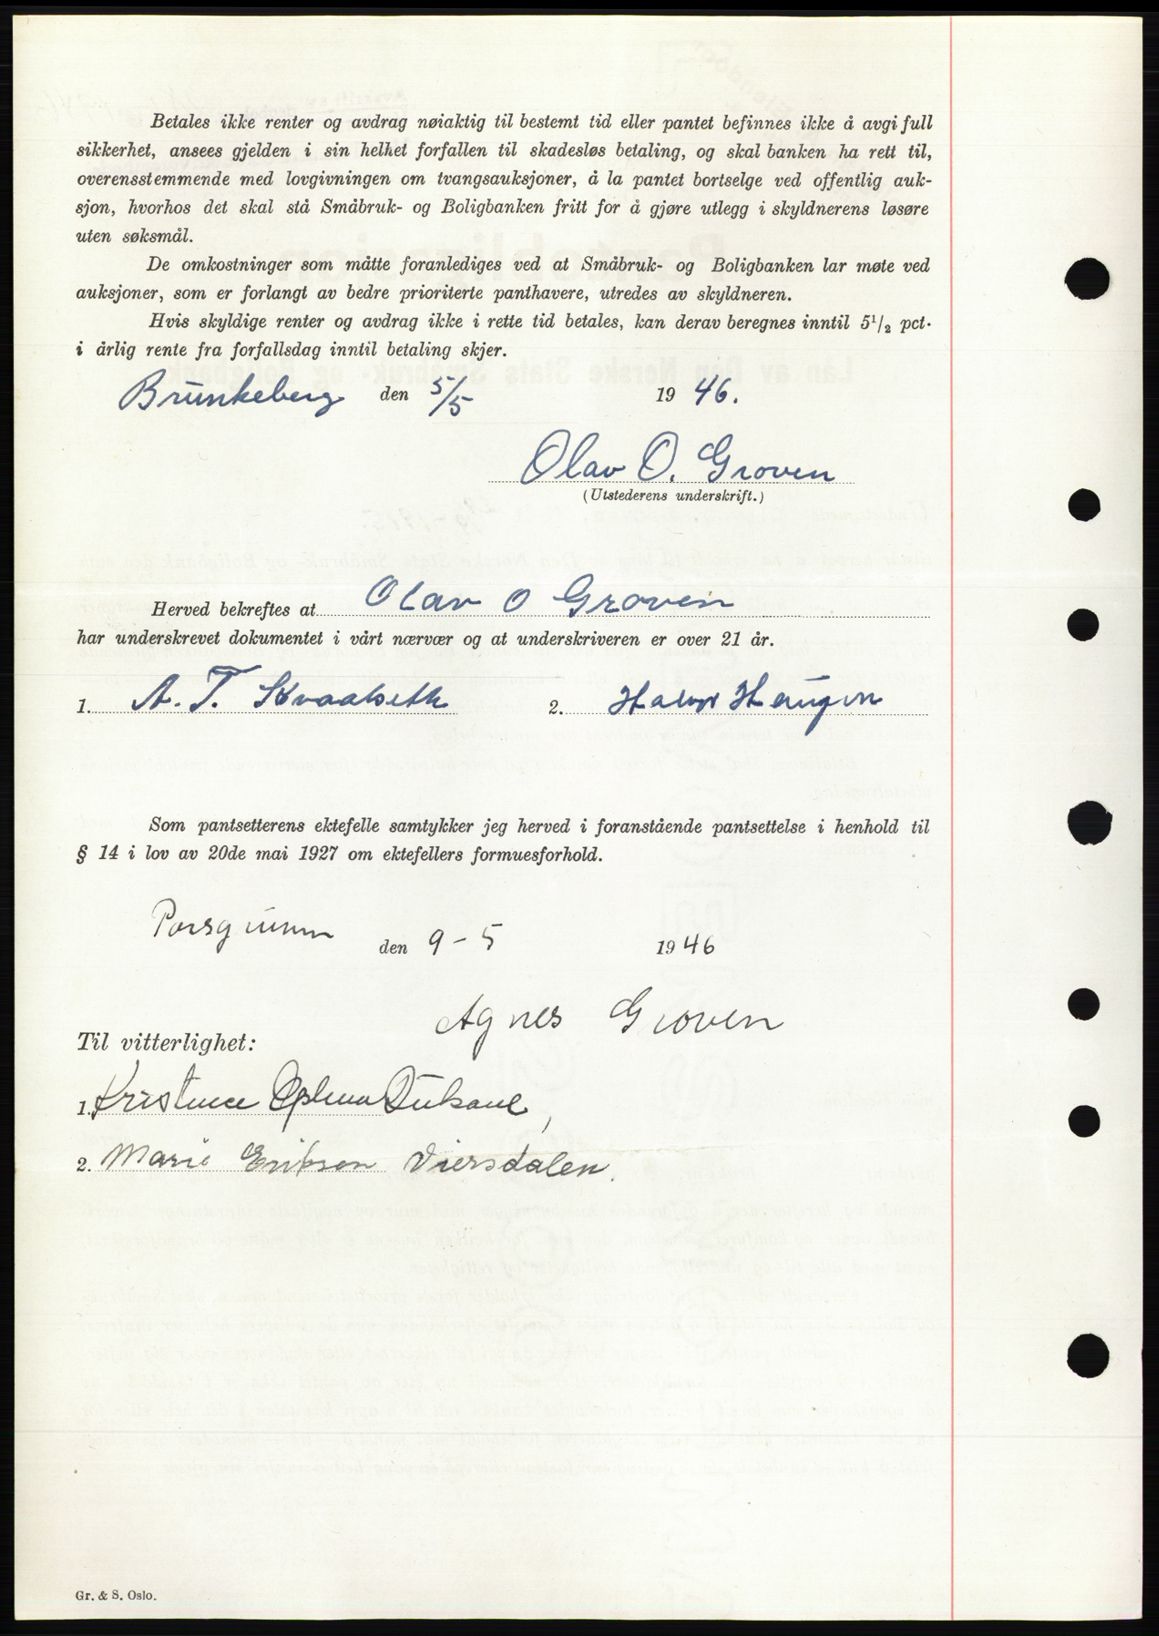 Betales ikke renter og avdrag nøiaktig til bestemt tid eller pantet befinnes ikke å avgi full
sikkerhet, ansees gjelden i sin helhet forfallen til skadesløs betaling, og skal banken ha rett til,
overensstemmende med lovgivningen om tvangsauksjoner, å la pantet bortselge ved offentlig auk-
sjon, hvorhos det skal stå Småbruk- og Boligbanken fritt for å gjøre utlegg i skyldnerens løsøre
uten søksmål.
De omkostninger som måtte foranlediges ved at Småbruk- og Boligbanken lar møte ved
auksjoner, som er forlangt av bedre prioriterte panthavere, utredes av skyldneren.
Hvis skyldige renter og avdrag ikke i rette tid betales, kan derav beregnes inntil 5 1/2 pct.
i årlig rente fra forfallsdag inntil betaling skjer.
Brunkeberg den 5/5 1946.
Olav O. Groven
(Utstederens underskrift.)
Herved bekreftes at Olav O Groven
har underskrevet dokumentet i vårt nærvær og at underskriveren er over 21 år.
1. A. T. Kvaalseth 2. Halvor Haugen
Som pantsetterens ektefelle samtykker jeg herved i foranstående pantsettelse i henhold til
§ 14 i lov av 20de mai 1927 om ektefellers formuesforhold.
Porsgrunn den 9-5 1946
Agnes Groven
Til vitterlighet:
1.
2. Marie Erikson Viersdalen.
Gr. & S. Oslo.